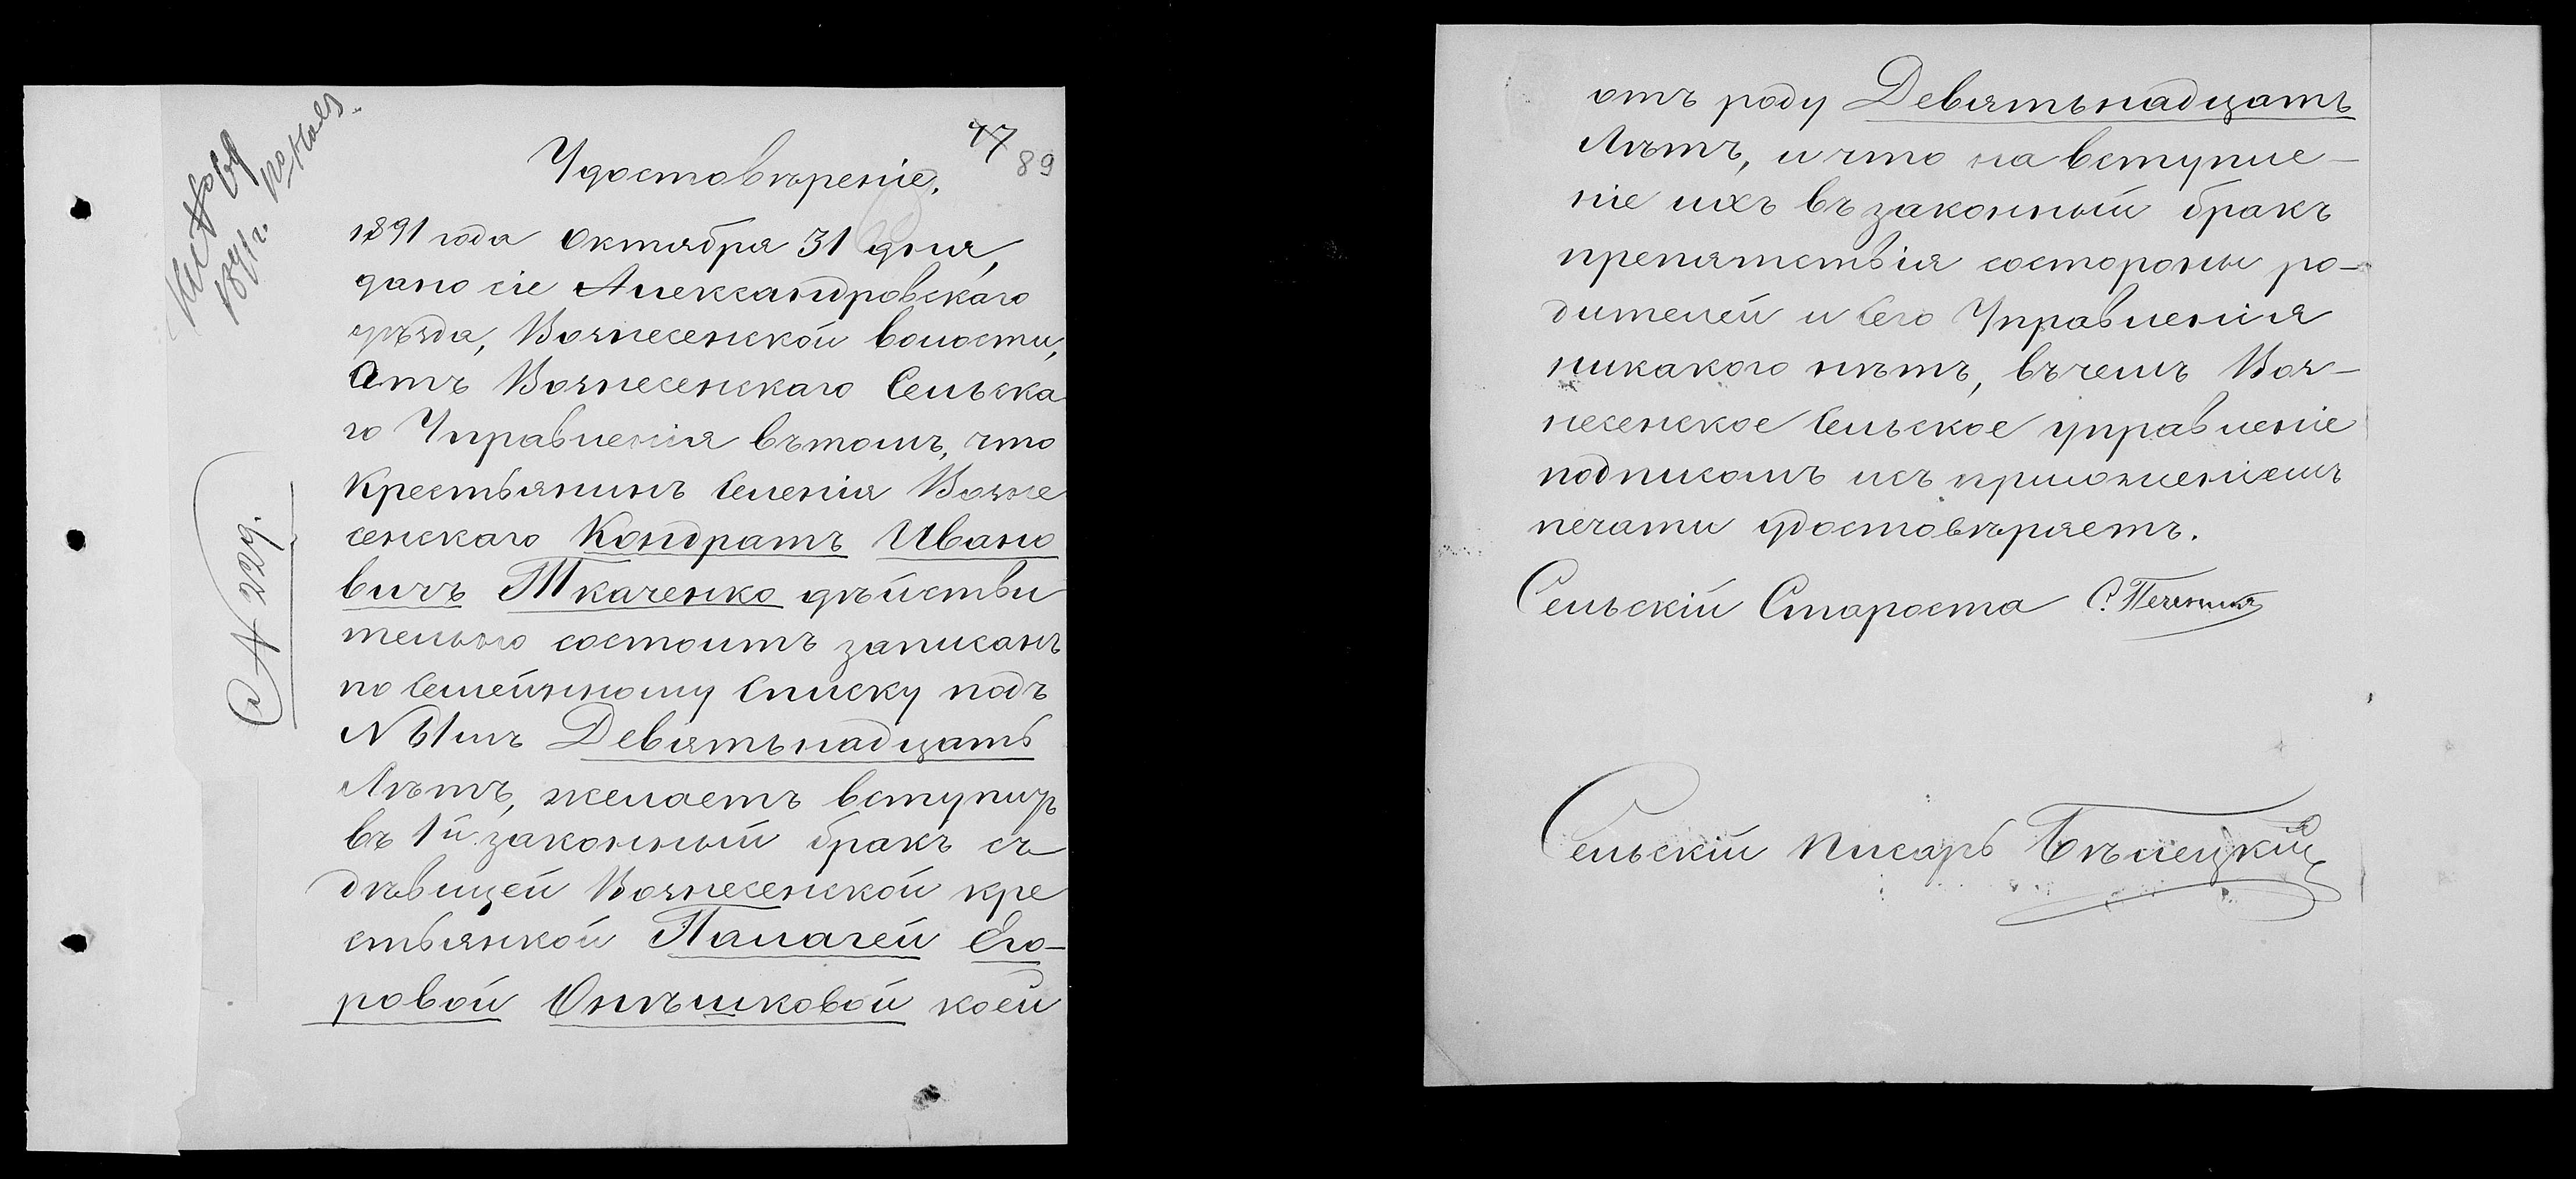 47
89
Удостовѣреніе.
1891 года Октября 31 дня,
дано сіе Александровскаго
уѣзда, Вознесенской волости,
Отъ Вознесенскаго Сельска
го Управленія вътомъ, что
Крестьянинъ Селенія Возне
сенскаго Кондратъ Ивано
вичъ Ткаченко дѣйстви
тельно состоитъ записанъ
по Семейнному Списку подъ
N 61мъ Девятьнадцать
Лѣтъ, желаетъ вступить
въ 1й законный бракъ съ
дѣвицей Вознесенской кре
стьянкой Палагей Его-
ровой коей
N 229.
1891 г.
отъ роду Девятьнадцатъ
Лѣтъ, и что на вступле-
ніе ихъ въ законный бракъ
препятствія состороны ро-
дителей и Сего Управленія
никакого нѣтъ, въчемъ Воз-
несенское Сельское управленіе
подписомъ исъ приложеніемъ
печати удостовѣряетъ.
Сельскій Староста С.
Сельскій Писарь Бѣлецкій